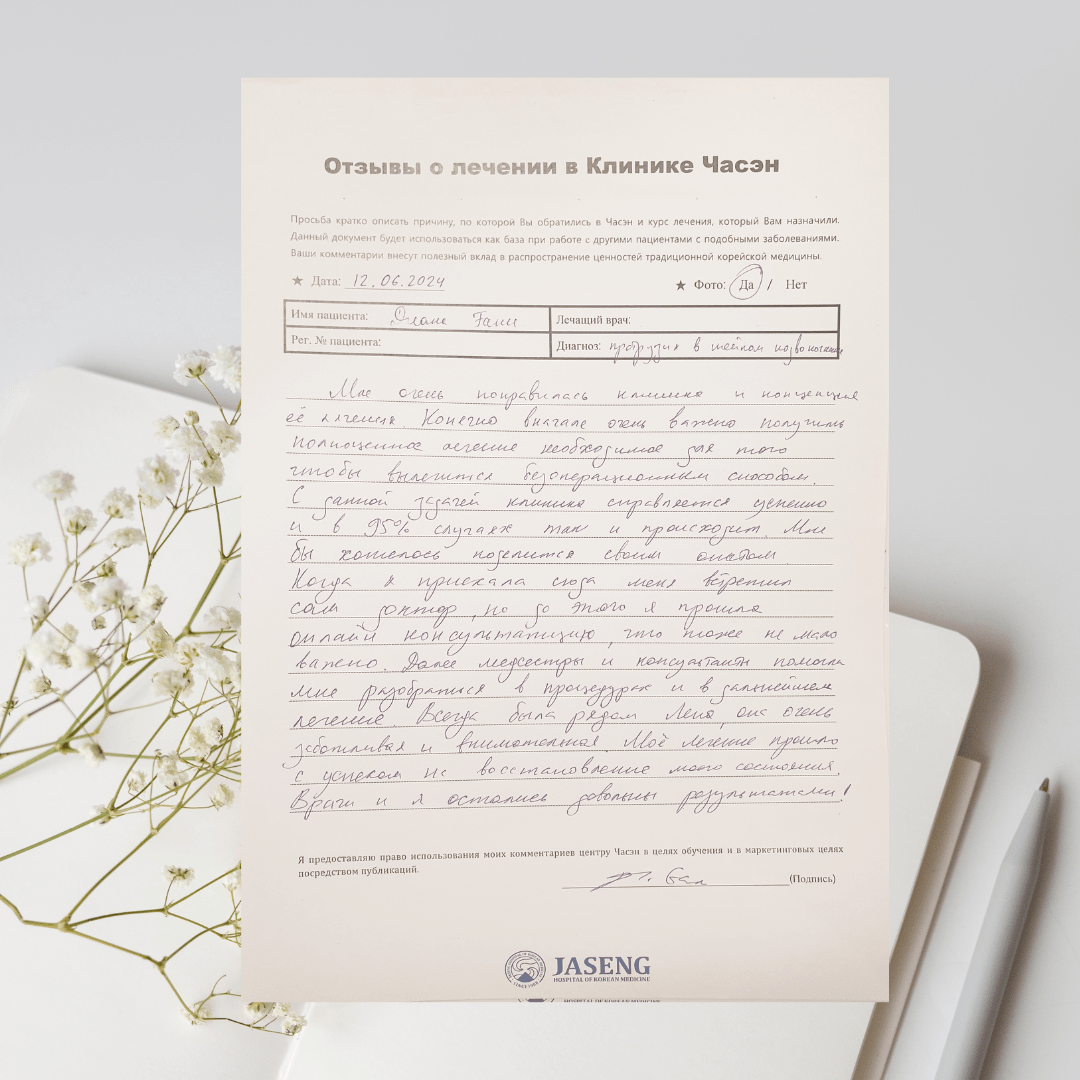 Отзывы о лечении в Клинике Часэн
Просьба кратко описать причину, по которой Вы обратились в Часэн и курс лечения, который Вам назначили.
Данный документ будет использоваться как база при работе с другими пациентами с подобными заболеваниями.
Ваши комментарии внесут полезный вклад в распространение ценностей традиционной корейской медицины.
★ Дата: 12.06.2024 ★ Фото: Да / Нет
Имя пациента: Лечащий врач:
Рег. № пациента: Диагноз: протрузия в шейном
Мне очень понравилась клиника и концепция
её лечения. Конечно вначале очень важно получить
полноценное лечение необходимое для того
чтобы вылечится безоперационным способом.
С данной задачей клиника справляется успешно
и в 95% случаях так и происходит. Мне
бы хотелось поделится своим опытом.
Когда я приехала сюда меня встретил
сам доктор, но до этого я прошла
онлайн консультацию, что тоже не мало
важно. Далее медсестры и консультанты помогли
мне разобраться в процедурах и в дальнейшем
лечение. Всегда была рядом Лена, она очень
заботливая и внимательная. Моё лечение прошло
с успехом на восстановление моего состояния.
Врачи и я остались довольны результатами!
Я предоставляю право использования моих комментариев центру Часэн в целях обучения и в маркетинговых целях
посредством публикаций.
(Подпись)
JASENG
HOSPITAL OF KOREAN MEDICINE
HOSPITAL OF KOREAN MEDICINE